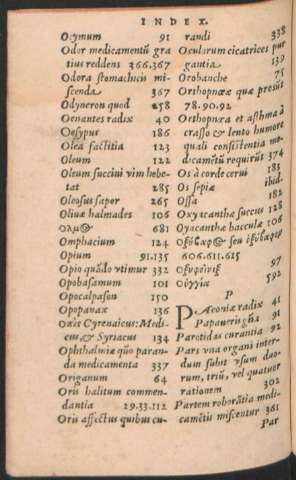 INDEX.
Ozymum 91
Odor medicamentũ gra
tius reddens 366.367
Odora stomachicis mi-
scenda 367
Odyneron quod 258
Oenantes radix 40
Oesypus 186
Olea factitia 123
Oleum 122
Oleum succini vim hebe-
tat 285
Oleosus sapor 265
Oliuæ halmades 106
681
Omphacium 124
Opium 91.135
Opio quãdo vtimur 332
Opobasamum 101
Opocalpason 150
Opopanax 136
Cyrenaicus: Medi-
cus & Syriacus 134
Ophthalmiæ quo paran-
da medicamenta 337
Origanum 64
Oris halitum commen-
dantia 29.33.112
Oris affectus quibus cu-
randi 338
Ocularum cicatrices pur
gantia 139
Orobanche 75
Orthopnœæ quæ prosũt
78.90.92
Orthopnœa et asthma à
crasso & lento humore
quali consistentia me-
dicamẽtũ requirũt 374
Os à corde cerui 185
Os sepiæ ibid.
Ossa 182
Oxyacanthæ succus 128
Oxyacanthæ bacculæ 106
seu
606.611.615
97
592
P
PÆoniæ radix 41
Papauer 91
Parotidas curantia 92
Pars vna organi inter-
dum subit vsum duo-
rum, triũ, vel quatuor
rationem 302
Partem roborãtia medi-
camẽtis miscentur 361
Par